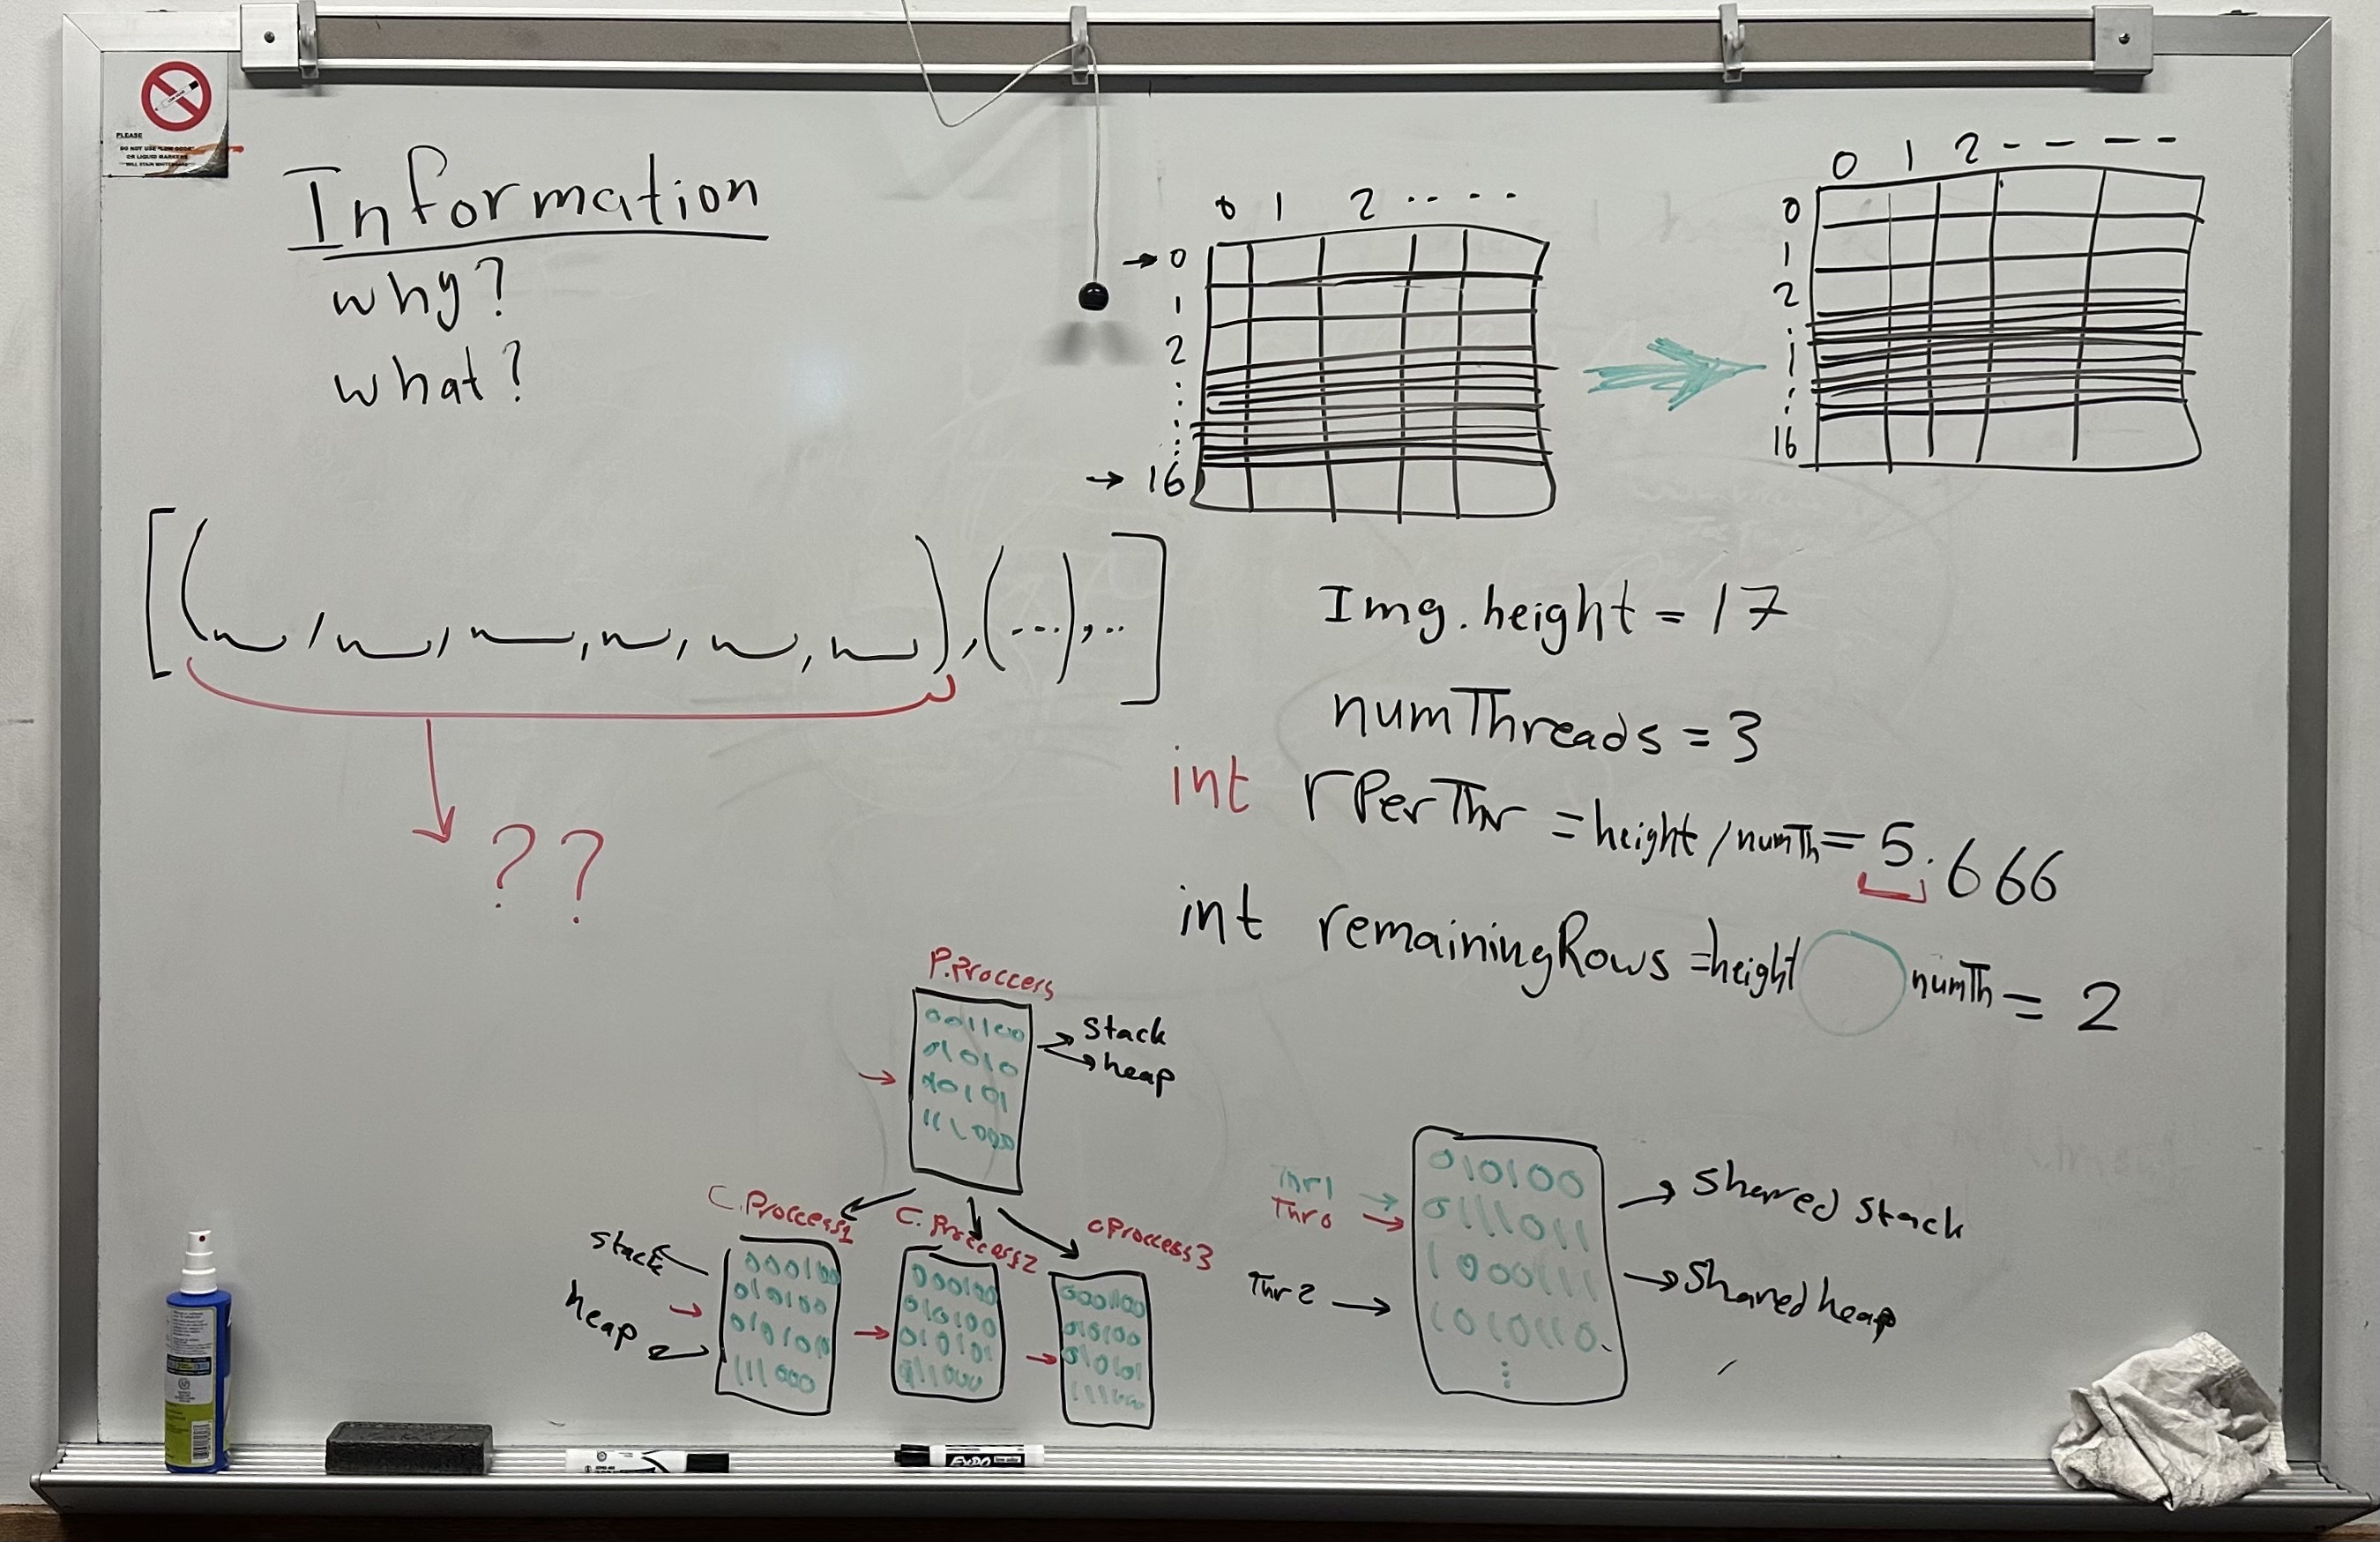 PLEASE
DO NOT USE "LOW ODOR"
OR LIQUID MARKERS
WILL STAIN WHITEBOARD
Information
why?
what?
[( , , , , , ),(...),..]
??
0 1 2 .. . .
→ 0
1
2
:
:
→ 16
0 1 2 - - - -
0
1
2
:
16
Img.height = 17
numThreads = 3
int rPerThr = height / numTh = 5.666
int remainingRows = height numTh = 2
P.Proccess
001100
01010
10101
111000
stack
heap
C.Proccess1
stack
heap
000100
010100
010101
111000
C.Proccess2
000100
010100
010101
111000
cProccess3
000100
010100
010101
111000
Thr1
Thr0
Thr2
010100
0111011
1000111
1010110.
:
shared stack
shared heap
EXPO